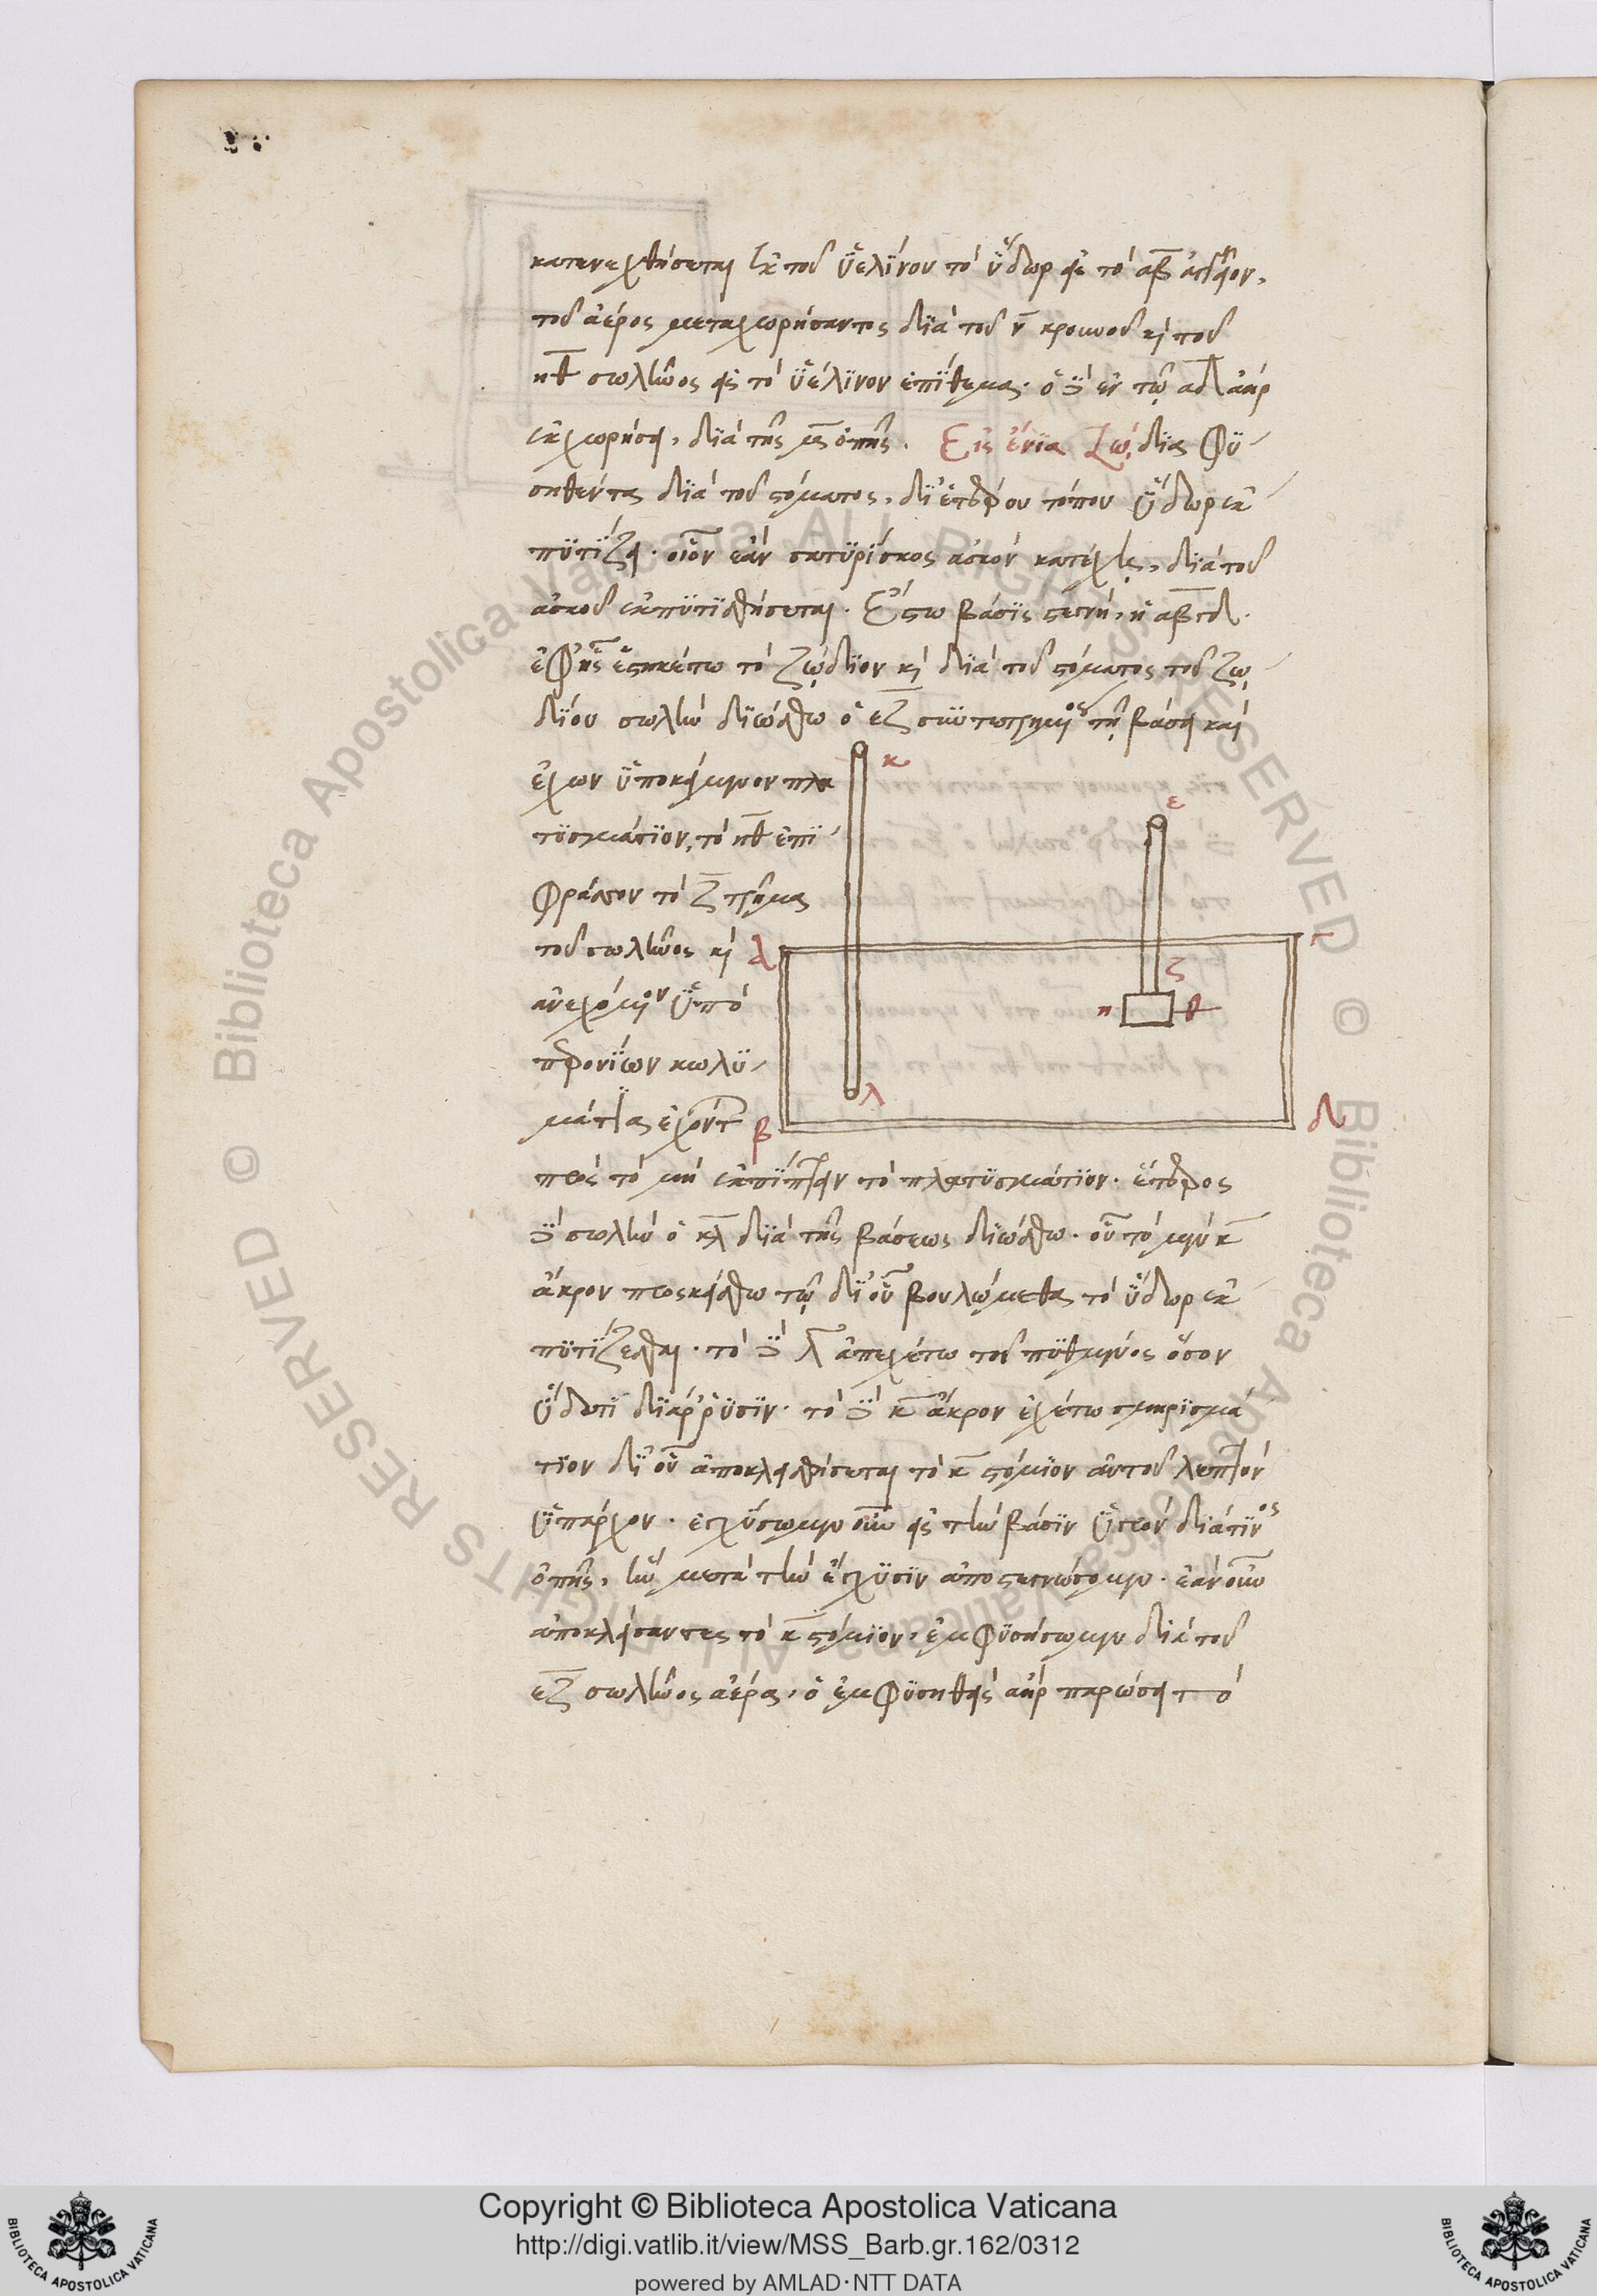 κατενεχθήσεται ἐκ τοῦ ὑελίνου τὸ ὕδωρ εἰς τὸ αβ ἀγγεῖον,
τοῦ ἀέρος μεταχωρήσαντος διὰ τοῦ ν κρουνοῦ κὶ τοῦ
ηθ σωλῆνος εἰς τὸ ὑέλινον ἐπίθεμα· ὁ δὲ ἐν τῷ αδ ἀὴρ
ἐκχωρήσει, διὰ τῆς μξ ὀπῆς. Εἰς ἔνια ζῴδια φυ-
σηθέντα διὰ τοῦ στόματος, δι' ἑτέρου τόπου ὕδωρ ἐκ
πυτίζει· οἷον ἐὰν σατυρίσκος ἀσκὸν κατέχῃ, διὰ τοῦ
ἀσκοῦ ἐκπυτισθήσεται. Ἔστω βάσις στεγνὴ, ἡ αβγδ.
ἐφ' ἧς ἑστηκέτω τὸ ζῴδιον κὶ διὰ τοῦ στόματος τοῦ ζῳ
δίου σωλὴν διώσθω ὁ εζ συντετρημένος τῇ βάσει καὶ
ἔχων ὑποκείμενον πλα
τυσμάτιον, τὸ ηθ ἐπι-
φράσσον τὸ ζ τρῆμα
τοῦ σωλῆνος κὶ
ἀνεχόμενον ὑπὸ
περονίων κωλυ-
μάτια ἐχόντων
πρὸς τὸ μὴ ἐκπίπτειν τὸ πλατυσμάτιον. ἕτερος
δὲ σωλὴν ὁ κλ διὰ τῆς βάσεως διώσθω. οὗ τὸ μὲν κ
ἄκρον προσκείσθω τῷ δι' οὗ βουλώμεθα τὸ ὕδωρ ἐκ
πυτίζεσθαι. τὸ δὲ λ ἀπεχέτω τοῦ πυθμένος ὅσον
ὕδατι διάρρυσιν. τὸ δὲ κ ἄκρον ἐχέτω σμηρισμά
τιον δι' οὗ ἀποκλεισθήσεται τὸ κ στόμιον αὐτοῦ λεπτὸν
ὑπάρχον. ἐγχύσωμεν οὖν εἰς τὴν βάσιν ὑγρὸν διά τινος
ὀπῆς, ἣν μετὰ τὴν ἔγχυσιν ἀποστεγνώσομεν. ἐὰν οὖν
ἀποκλείσαντες τὸ κ στόμιον, ἐμφυσήσωμεν διὰ τοῦ
εζ σωλῆνος ἀέρα, ὁ ἐμφυσηθεὶς ἀὴρ παρώσει τὸ
κ
ε
α
γ
ζ
η
θ
λ
β
δ
Copyright © Biblioteca Apostolica Vaticana
http://digi.vatlib.it/view/MSS_Barb.gr.162/0312
powered by AMLAD·NTT DATA
BIBLIOTECA APOSTOLICA VATICANA
BIBLIOTECA APOSTOLICA VATICANA
© Biblioteca Apostolica Vaticana ALL RIGHTS RESERVED
© Biblioteca Apostolica Vaticana ALL RIGHTS RESERVED